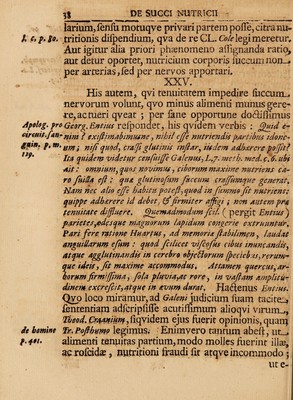 38 DE SUCCI NUTRICII
larium, sensu motuqve privari partem posse, citra nu-
l. c. p. 80. tritionis dispendium, qva de re CL. Cole legi meretur.
Aut igitur alia priori phænomeno assignanda ratio,
aut detur oportet, nutricium corporis succum non
per arterias, sed per nervos apportari.
XXV.
His autem, qvi tenuitatem impedire succum
nervorum volunt, qvo minus alimenti munus gere-
re, actueri qveat; per sane opportune doctissimus
Apolog. pro Georg. Entius respondet, his qvidem verbis: Quid e-
circuit. san- nim? existimabimusne, nihil esse nutriendis partibus idone-
guin, p. m. um; nisi quod, crasi glutinis instar, iisdem adhærere possit?
119. Ita quidem videtur censuisse Galenus, L. 7. meth. med. c. 6. ubi
ait: omnium, quos novimus, ciborum maxime nutriens ca-
ro suilla est: quæ glutinosum succum crassumque generat.
Nam nec alio esse habitu potest, quod in summo sit nutriens;
quippe adhærere id debet, & firmiter affigi; non autem præ
tenuitate diffluere. Quemadmodum scil. (pergit Entius)
parietes, adesque magnorum lapidum congerie extruuntur.
Pari fere ratione Huartus, ad memoriæ stabilimen, laudat
anguillarum esum: quod scilicet viscosus cibus inuncandis,
atque agglutinandis in cerebro objectorum speciebus, rerum-
que ideis, sit maxime accommodus. Attamen quercus, ar-
borum firmissima, sola pluvia, ac rore, in vastam amplitu-
dinem excrescit, atque in ævum durat. Hactenus Entius.
Qvo loco miramur, ad Galeni judicium suam tacite
sententiam adscripsisse acutissimum alioqvi virum
Theod. Craanium, siqvidem ejus fuerit opinionis, quam
de homine Tr. Posthumo legimus. Enimvero tantum abest, ut
p. 401. alimenti tenuitas partium, modo molles fuerint illæ,
ac roscidæ, nutritioni fraudi sit atqve incommodo;
ut e-